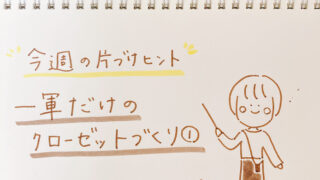 今週の片づけヒント
一軍だけの
クローゼットづくり①